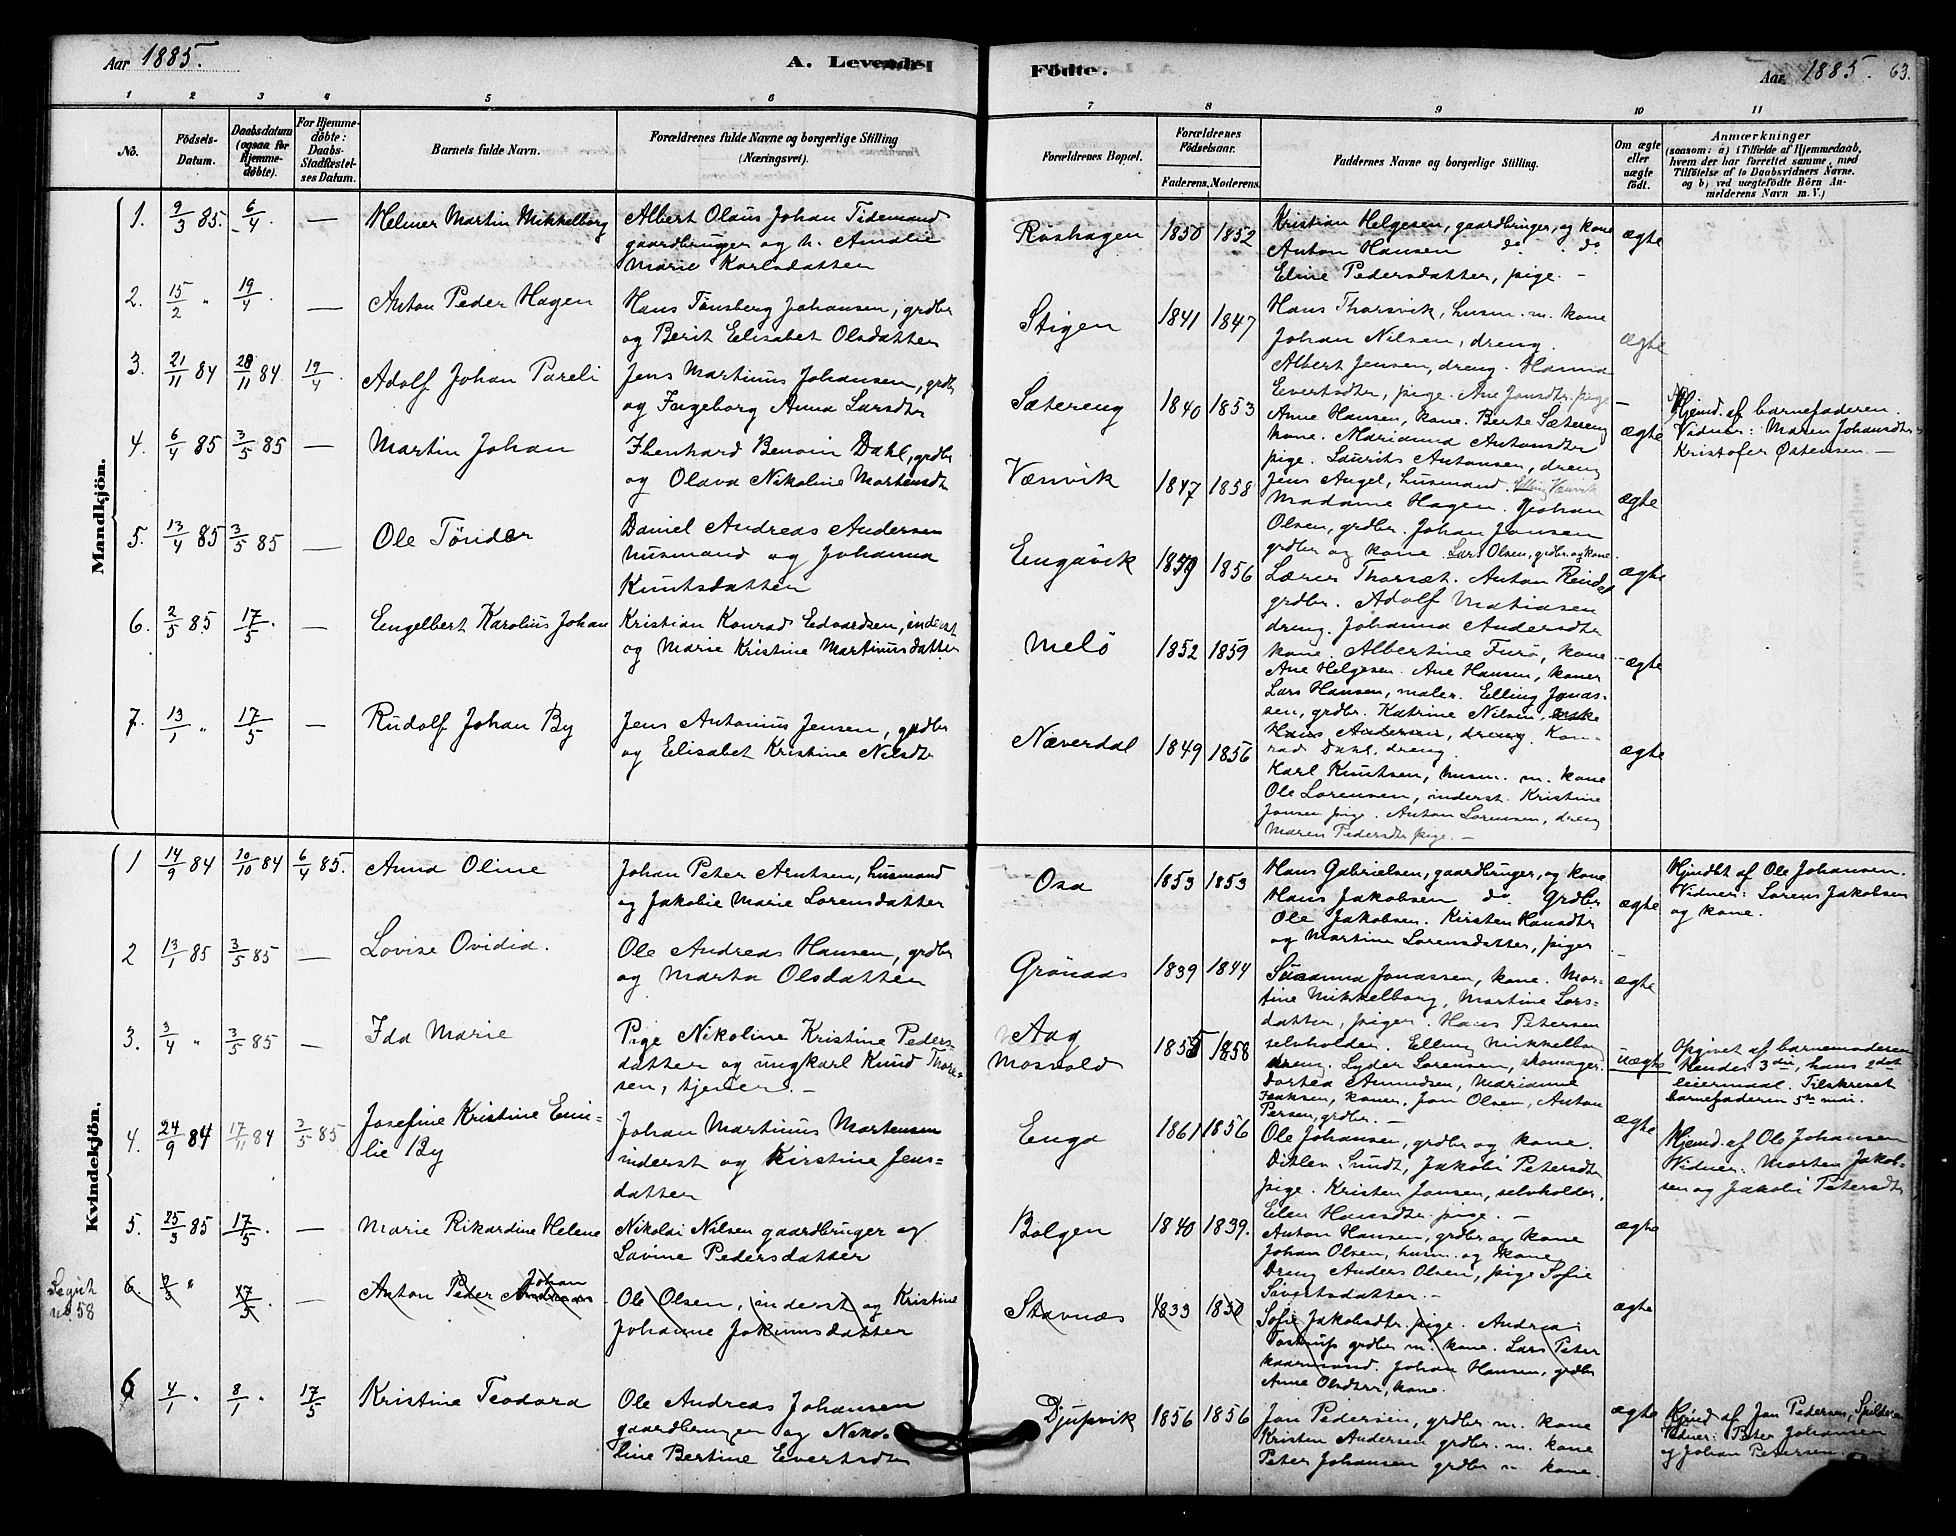 Aar 1885.
A. Levende
Födte.
Aar 1885. 63.
1 2 3 4 5 6 7 8 9 10 11
No.
Födsels-
Datum.
Daabsdatum
(ogsaa for
Hjemme-
döbte).
For Hjemme-
döbte:
Daabs-
Stadfæstel-
ses Datum.
Barnets fulde Navn.
Forældrenes fulde Navne og borgerlige Stilling
(Næringsvei).
Forældrenes Bopæl.
Forældrenes
Födselsaar.
Faderens. Moderens.
Faddernes Navne og borgerlige Stilling.
Om ægte
eller
uægte
födt.
Anmærkninger
(saasom: a) i Tilfælde af Hjemmedaab,
hvem der har forrettet samme, med
Tilföielse af to Daabsvidners Navne,
og b) ved uægtefödte Börn An-
melderens Navn m. V.)
Mandkjön.
1. 9/3 85. 6/4 — Helmer Martin Mikkelborg
Albert Olaus Johan Tidemand
gaardbruger og h. Amalie
Marie Karlsdatter
Røshagen 1850 1852
Kristian Helgesen, gaardbruger, og kone
Anton Hansen do. do
Eline Pedersdatter, pige. —
ægte
2. 15/2 " 19/4 — Anton Peder Hagen
Hans Tønsberg Johansen, grdbr
og Berit Elisabet Olsdatter
Stigen 1841 1847
Hans Thorsvik, husm. m. kone
Johan Nilsen, dreng.
Albert Jensen, dreng. Hanna
ægte
3. 21/11 84 28/11 84 19/4 Adolf Johan Pareli
Jens Martinus Johansen, grdbr
og Ingeborg Anna Larsdtr
Sætereng 1840 1853
Evertsdtr, pige. Ane Jonsdtr. pige
Anne Hansen, kone. Berte Sætereng
kone. Marianna Antonsdtr
pige. Laurits Antonsen, dreng
ægte
Hjemd. af barnefaderen.
Vidner: Maren Johansdtr
Kristofer Østensen. —
4. 6/4 85 3/5 85 — Martin Johan
Ehenhard Benoin Dahl, grdbr
og Olava Nikoline Mortensdtr
Vænvik 1847 1858
Jens Angel, husmand. Elling Vænvik
Madame Hagen. Johan
Olsen, grdbr. Johan Jonsen
grdbr og kone. Lars Olsen, grdbr. og kone.
ægte
5. 13/4 85 3/5 85 — Ole Tönder
Daniel Andreas Andersen
husmand og Johanna
Knutsdatter
Engavik 1859 1856
Lærer Thorsæt. Anton Reindel
grdbr. Adolf Matiasen
dreng. Johanna Andersdtr
kone. Albertine Furø, kone
ægte
6. 2/5 85 17/5. — Engelbert Karolius Johan
Kristian Konrad Edvardsen, inderst
og Marie Kristine Martinusdatter
Melö 1852 1859
Ane Helgesen. Ane Hansen, koner
Lars Hansen, maler. Elling Jonas-
sen, grdbr. Katrine Nilsen, enke
Hans Andersen, dreng. Kon-
rad Dahl, dreng
ægte
7. 13/1 " 17/5 — Rudolf Johan By
Jens Antonius Jensen, grdbr
og Elisabet Kristine Nilsdtr
Næverdal 1849 1856
Karl Knutsen, husm. m. kone
Ole Lorensen, inderst. Kristine
Jonsen pige. Anton Lorensen, dreng
Maren Pedersdtr pige. —
ægte
Kvindekjön.
1 14/9 84 10/10 84 6/4 85. Anna Oline
Johan Peter Arntsen, husmand
og Jakobie Marie Lorensdatter
Osa 1853 1853
Hans Gabrielsen, gaardbruger, og kone
Hans Jakobsen do. Grdbr
Ole Jakobsen. Kirsten Hansdtr
og Martine Lorensdatter, piger
ægte
Hjmdbt af Ole Johansen.
Vidner: Lorens Jakobsen
og kone.
2 13/1 85 3/5 85 — Lovise Ovidia.
Ole Andreas Hansen, grdbr
og Marta Olsdatter
Grönaas 1839 1844
Susanna Jonassen, kone. Mar-
tine Mikkelborg, Martine Lars-
datter, piger. Hans Petersen
ægte
3. 3/4 " 3/5 85 — Ida Marie
Pige Nikoline Kristine Peders-
datter og ungkarl Knud Thore-
sen, tjener. —
Aag
Mosvold 1855 1858
selvholder. Elling Mikkelborg
dreng. Lyder Lorensen, skomager.
Dortea Amundsen, Marianne
Isaksen, koner, Jon Olsen, Anton
Persen, grdbr. —
uægte
Opgivet af barnemoderen
Hendes 3die, hans 2det
leiermaal. Tilskrevet
barnefaderen 5te mai.
4. 24/9 84 17/11 84 3/5 85 Josefine Kristine Emi-
lie By
Johan Martinus Mortensen
inderst og Kirstine Jens-
datter
Enga 1861 1856
Ole Johansen, grdbr og kone.
Ditlev Sundt, Jakobi Petersdtr
pige. Kristen Jonsen, selvholder.
Elen Hansdtr. pige. —
ægte
Hjemd. af Ole Johansen
Vidner: Morten Jakob-
sen og Jakobi Petersdtr
5. 25/3 85 17/5. — Marie Rikardine Helene
Nikolai Nilsen gaardbruger og
Lavine Pedersdatter
Bolgen 1840 1839.
Anton Hansen, grdbr og kone
Johan Olsen, husm. og kone
Dreng Anders Olsen, pige Sofie
Sivertsdatter. —
ægte
no. 58
6. 17/5 — Anton Peder Johan
Ole Olsen, inderst og Kristine
Johanne Jokumsdatter
Stavnæs 1833 1850
Sofie Jakobsdtr. pige. Andreas
Tostrup grdbr m. kone. Lars Peter
kaarmand. Johan Hansen, grdbr
Anne Olsdtr, kone.
ægte
6 4/1 " 8/1 " 17/5 Kristine Teodora
Ole Andreas Johansen
gaardbruger og Niko-
line Bertine Evertsdtr
Djupvik 1856 1856
Jon Pedersen, grdbr. m. kone
Kristen Andersen grdbr. m. kone
Peter Johansen grdbr m kone.
ægte
Hjmd af Jon Pedersen,
Vidner: Peter Johansen
og Johan Petersen.